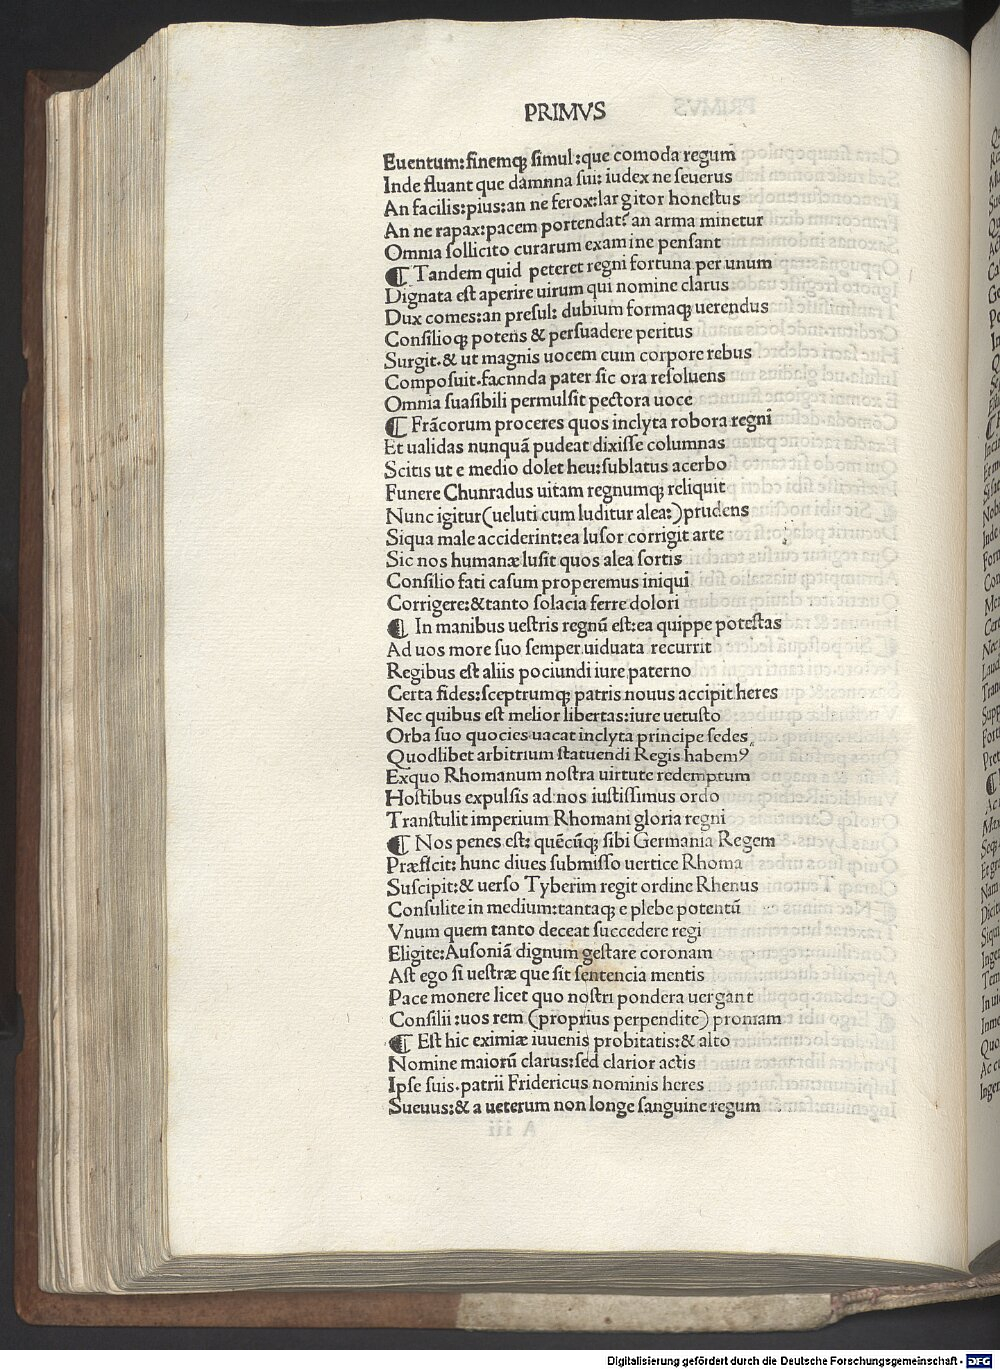 PRIMVS
Euentum:finemq; simul:que comoda regum
Inde fluant que damnna sui: iudex ne seuerus
An facilis:pius:an ne ferox:largitor honestus
An ne rapax:pacem portendat? an arma minetur
Omnia sollicito curarum examine pensant
¶ Tandem quid peteret regni fortuna per unum
Dignata est aperire uirum qui nomine clarus
Dux comes:an presul: dubium formaq; uerendus
Consilioq; potens & persuadere peritus
Surgit.& ut magnis uocem cum corpore rebus
Composuit.facnnda pater sic ora resoluens
Omnia suasibili permulsit pectora uoce
¶ Frãcorum proceres quos inclyta robora regni
Et ualidas nunquã pudeat dixisse columnas
Scitis ut e medio dolet heu:sublatus acerbo
Funere Chunradus uitam regnumq; reliquit
Nunc igitur(ueluti cum luditur alea:)prudens
Siqua male acciderint:ea lusor corrigit arte
Sic nos humanæ lusit quos alea sortis
Consilio fati casum properemus iniqui
Corrigere:&tanto solacia ferre dolori
¶ In manibus uestris regnũ est:ea quippe potestas
Ad uos more suo semper uiduata recurrit
Regibus est aliis pociundi iure paterno
Certa fides:sceptrumq; patris nouus accipit heres
Nec quibus est melior libertas:iure uetusto
Orba suo quocies uacat inclyta principe sedes
Quodlibet arbitrium statuendi Regis habem9
Exquo Rhomanum nostra uirtute redemptum
Hostibus expulsis ad nos iustissimus ordo
Transtulit imperium Rhomani gloria regni
¶ Nos penes est: quẽcũq; sibi Germania Regem
Præficit: hunc diues submisso uertice Rhoma
Suscipit:& uerso Tyberim regit ordine Rhenus
Consulite in medium:tantaq; e plebe potentũ
Vnum quem tanto deceat succedere regi
Eligite:Ausoniã dignum gestare coronam
Ast ego si uestræ que sit sentencia mentis
Pace monere licet quo nostri pondera uergant
Consilii:uos rem (proprius perpendite) promam
¶ Est hic eximiæ iuuenis probitatis:& alto
Nomine maiorũ clarus:sed clarior actis
Ipse suis.patrii Fridericus nominis heres
Sueuus:& a ueterum non longe sanguine regum
Digitalisierung gefördert durch die Deutsche Forschungsgemeinschaft - DFG